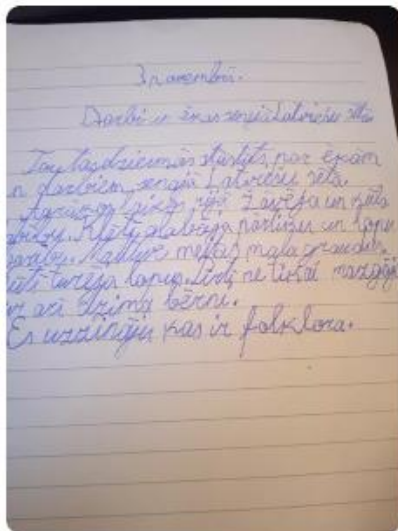 3 novembrī.
Darbi un ēkas senajā Latviešu sētā
Tautasdziesmās stāstīts par ēkām
n darbiem senajā Latviešu sētā.
laikos rijā žāvēja un kūla
labību. Klētī glabāja pārtiku un
Maltuvē meitas mala graudus.
ūtī turēja lopus. Pirtī ne tikai mazgājā
et arī dzima bērni.
Es uzzināju kas ir folklora.